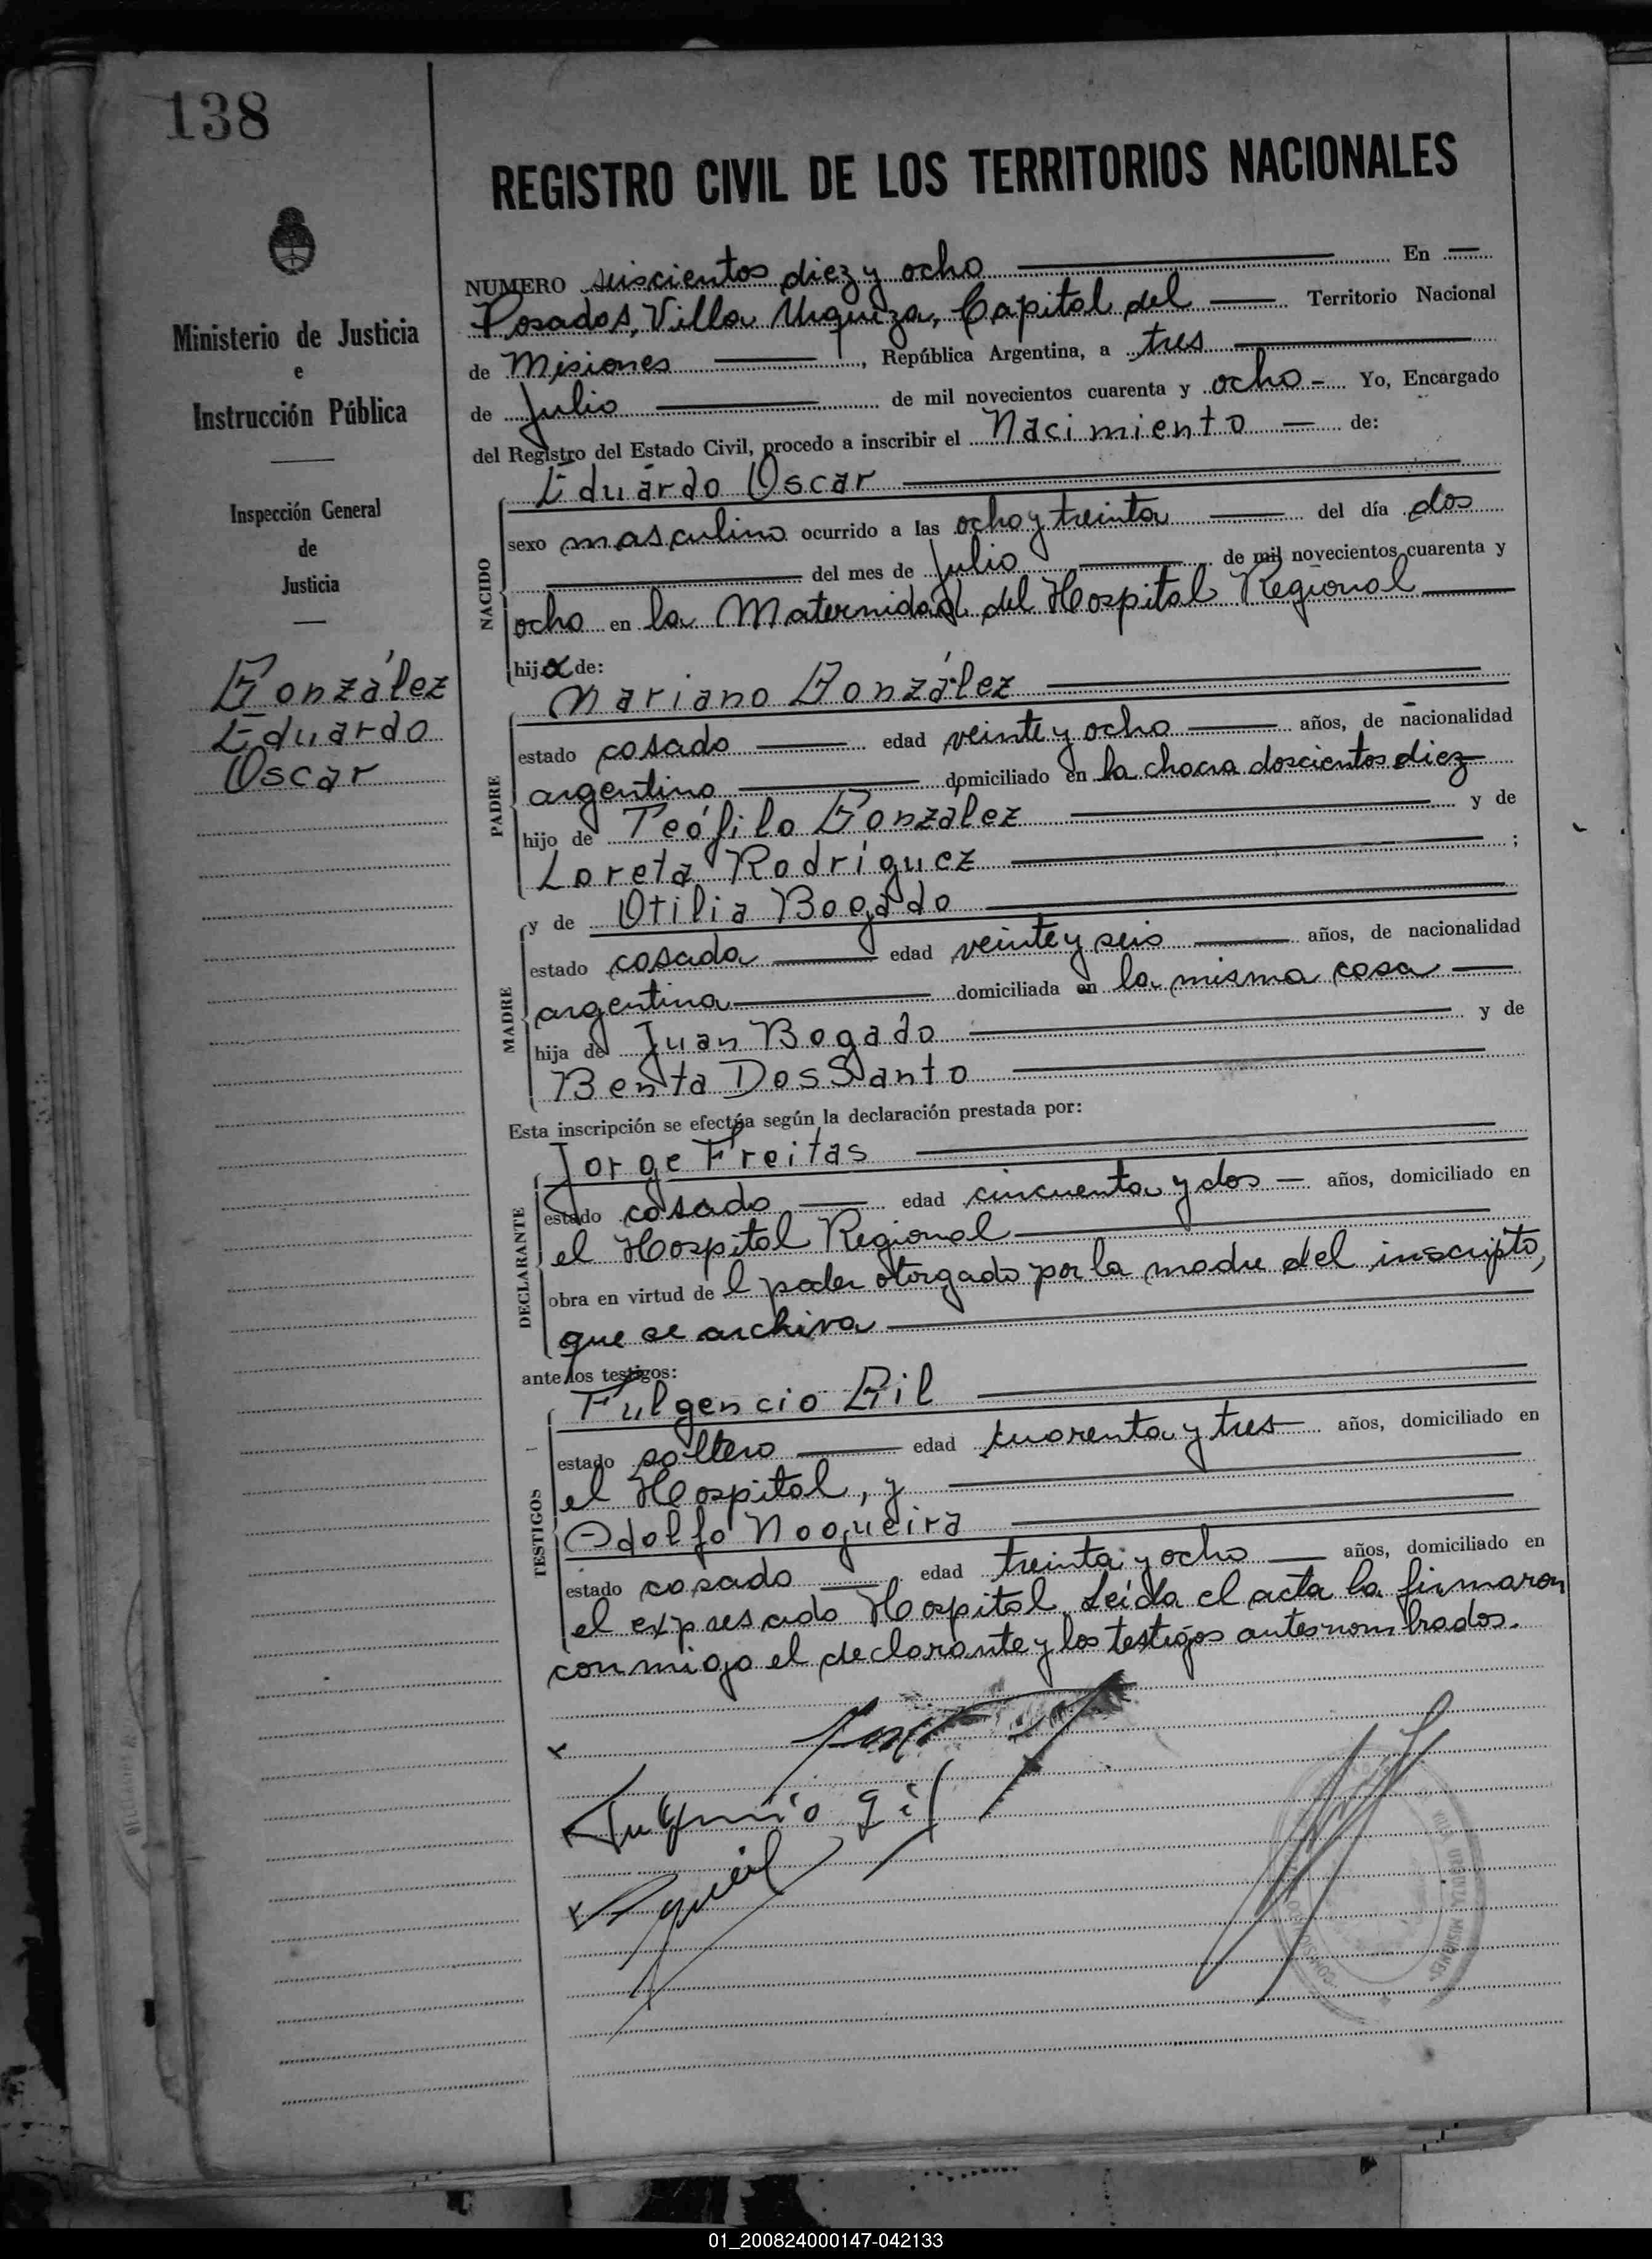 138
Ministerio de Justicia
e
Instrucción Pública
Inspección General
de
Justicia
González
Eduardo
Oscar
REGISTRO CIVIL DE LOS TERRITORIOS NACIONALES
NUMERO seiscientos diez y ocho En
Posadas, Villa Urquiza, Capital del Territorio Nacional
de Misiones, República Argentina, a tres
de Julio de mil novecientos cuarenta y ocho Yo, Encargado
del Registro del Estado Civil, procedo a inscribir el Nacimiento de:
Eduardo Oscar
NACIDO
sexo masculino ocurrido a las ocho y treinta del día dos
del mes de Julio de mil novecientos cuarenta y
ocho en la Maternidad del Hospital Regional
hijo de:
PADRE
Mariano González
estado casado edad veinte y ocho años, de nacionalidad
argentino domiciliado en la chacra doscientos diez
hijo de Teófilo González y de
Loreta Rodríguez ;
MADRE
y de Otilia Bogado
estado casada edad veinte y seis años, de nacionalidad
argentina domiciliada en la misma casa
hija de Juan Bogado y de
Benta DosSanto
Esta inscripción se efectúa según la declaración prestada por:
DECLARANTE
Jorge Freitas
estado casado edad cincuenta y dos años, domiciliado en
el Hospital Regional
obra en virtud de l poder otorgado por la madre del inscripto,
que se archiva
ante los testigos:
TESTIGOS
Fulgencio Gil
estado soltero edad cuarenta y tres años, domiciliado en
el Hospital, y
Adolfo Nogueira
estado casado edad treinta y ocho años, domiciliado en
el expresado Hospital. Leída el acta la firmaron
conmigo el declarante y los testigos antesnombrados.
Fulgencio gil
01_200824000147-042133